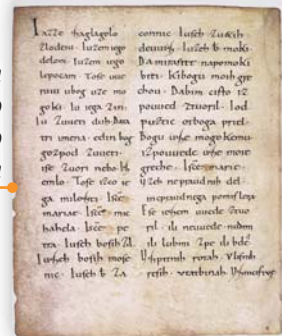 Iazze zaglagolo
zlodeiu· Iuzem iego
delom· Iuzem iego
lepocam· Tose uue
ruiu ubog uze mo
goki· Iu iega Zin·
Iu Zuueti duh Data
tri imena· edin bog
gozpod Zuueti·
ise Zuori nebo Iz
emlo· Tose izco ie
ga milosti· Isce
mariae· Isce· mic
hahela· Isce· pe
tra· Iusech bosih Zil·
Iusech bosih mose
nic· Iusech b Za
connic· Iusech Zuetih·
deuuiz· Iuzeh b moki·
napomoki
biti· Kibogu moih gre
chou· Dabim cisto iz
pouued ztuoril· Iod
puztic otboga priel·
Bogu uze mogokemu·
izpouuede uze moie
greche· Isce marie·
Uzeh nepraudnih del·
inepraudnega
Ese iezem uuede ztuo
ril· ili neuuede· nudmi
ili lubmi zpe ili bde·
rotah· Vlisnih
resih· vtatbinah·